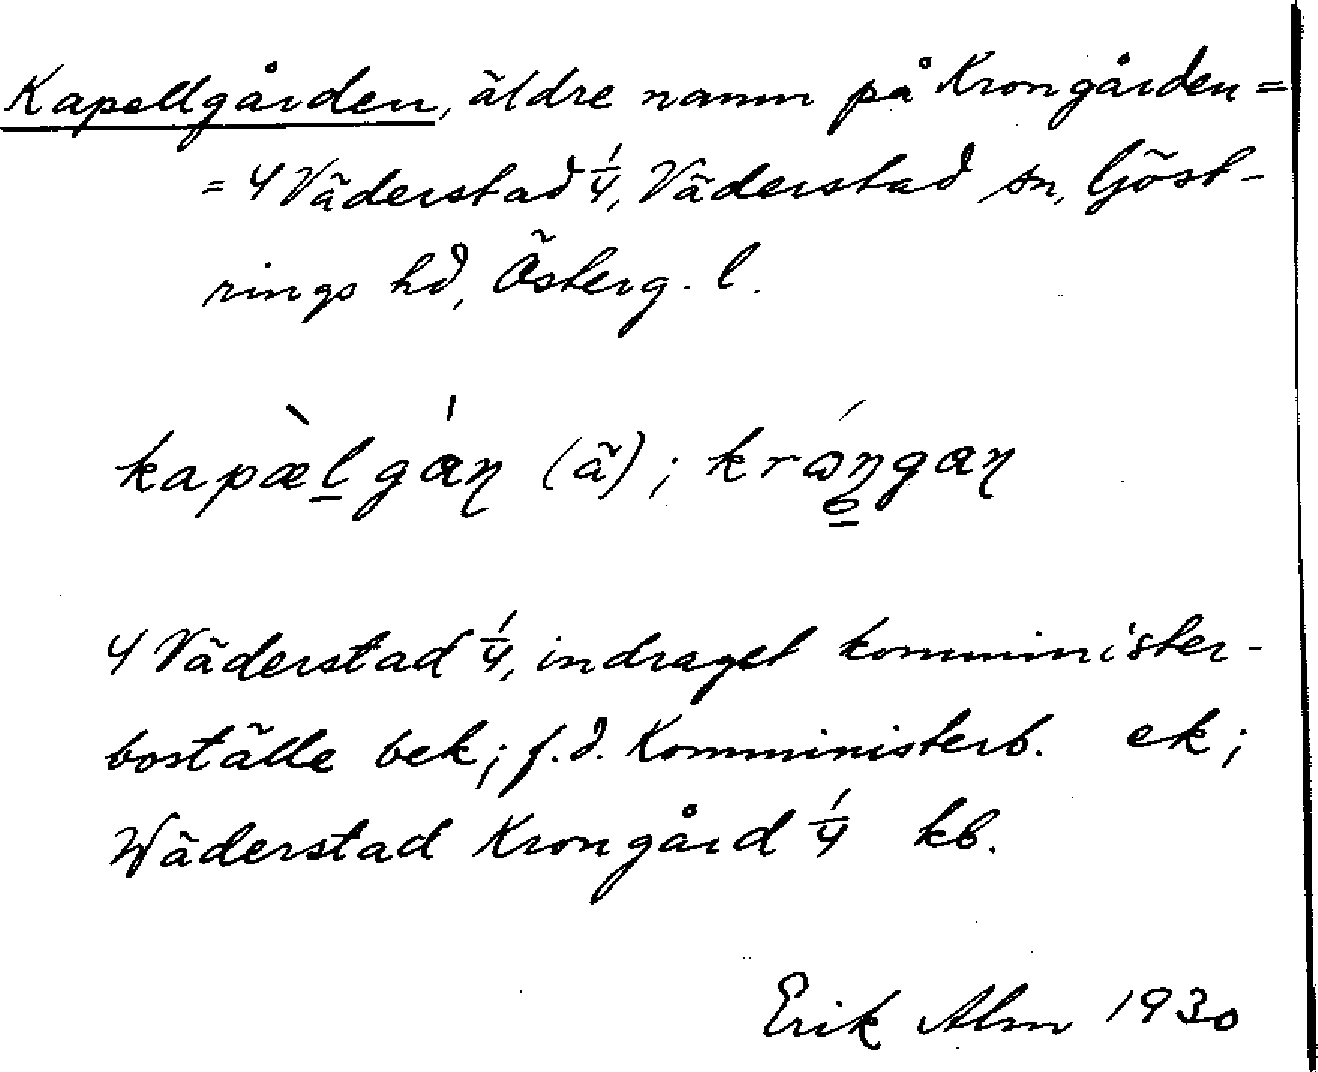 Kapellgården, äldre namn på Krongården =
= 4 Väderstad 1/4, Väderstad sn, Göst-
rings hd, Österg. l.
kapæ̀l̲gáɳ (ã); krɷ́ŋgaɳ
4 Väderstad 1/4, indraget komminister-
boställe bek; f.d. Komministerb. ek;
Wäderstad Krongård 1/4 kb.
Erik Alm 1930